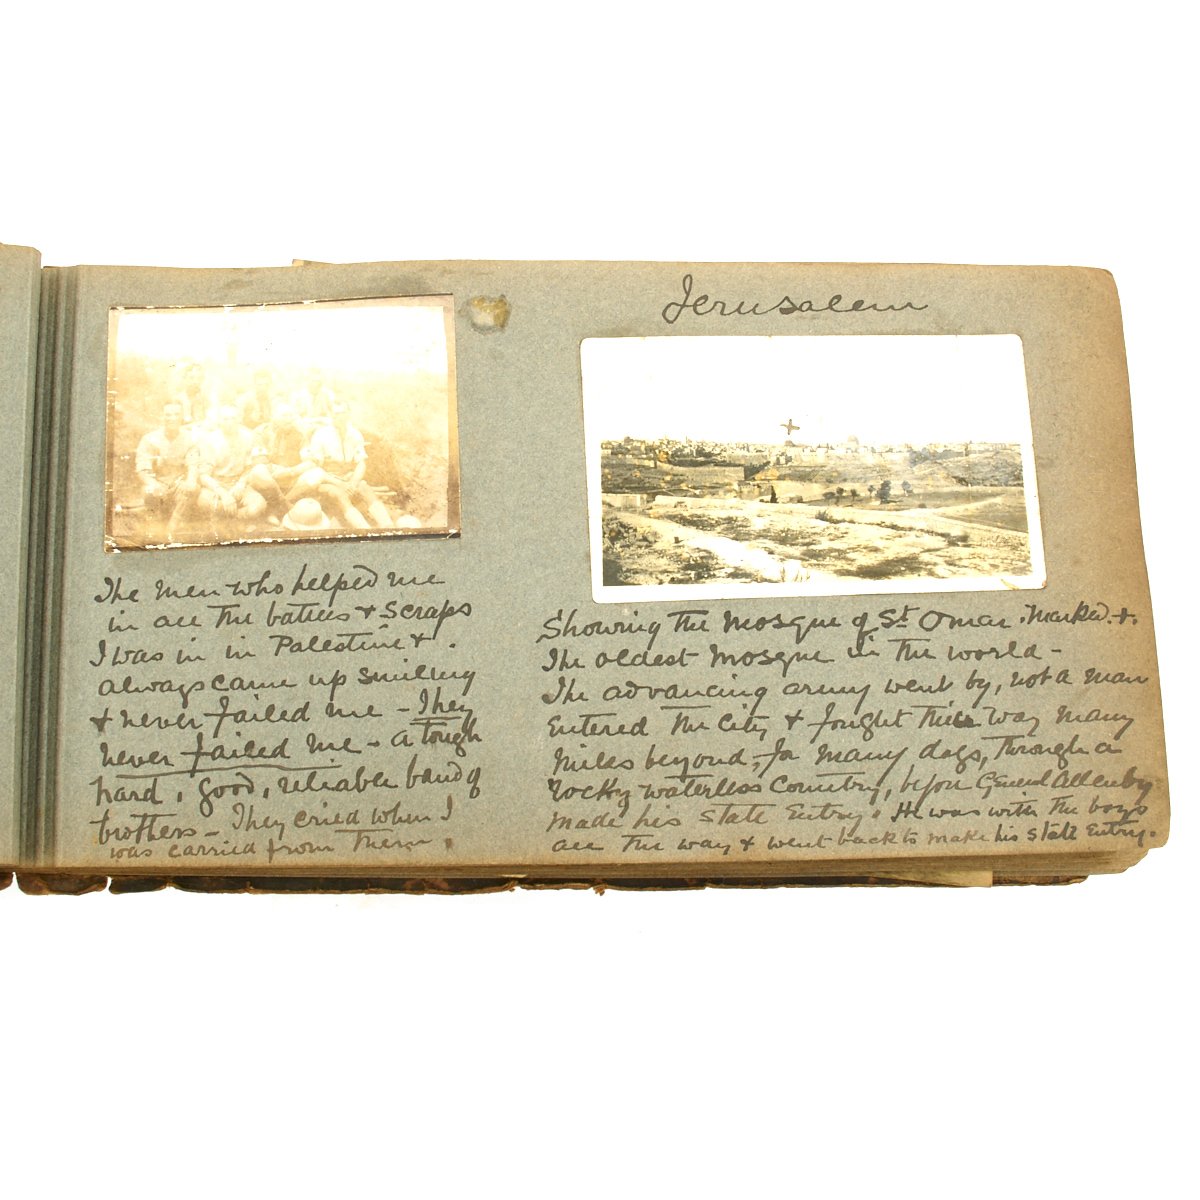 The men who helped me
in all the battles & scraps
I was in in Palestine & .
always came up smiling
& never failed me - They
never failed me - a tough
hard, good, reliable band of
brothers - They cried when I
was carried from them.
Jerusalem
Showing the Mosque of St Omar. Marked. +.
The oldest Mosque in the world -
The advancing army went by, not a man
entered the city & fought their way many
miles beyond, for many days, through a
rocky waterless country, before General Allenby
made his state entry. He was with the boys
all the way & went back to make his state entry.